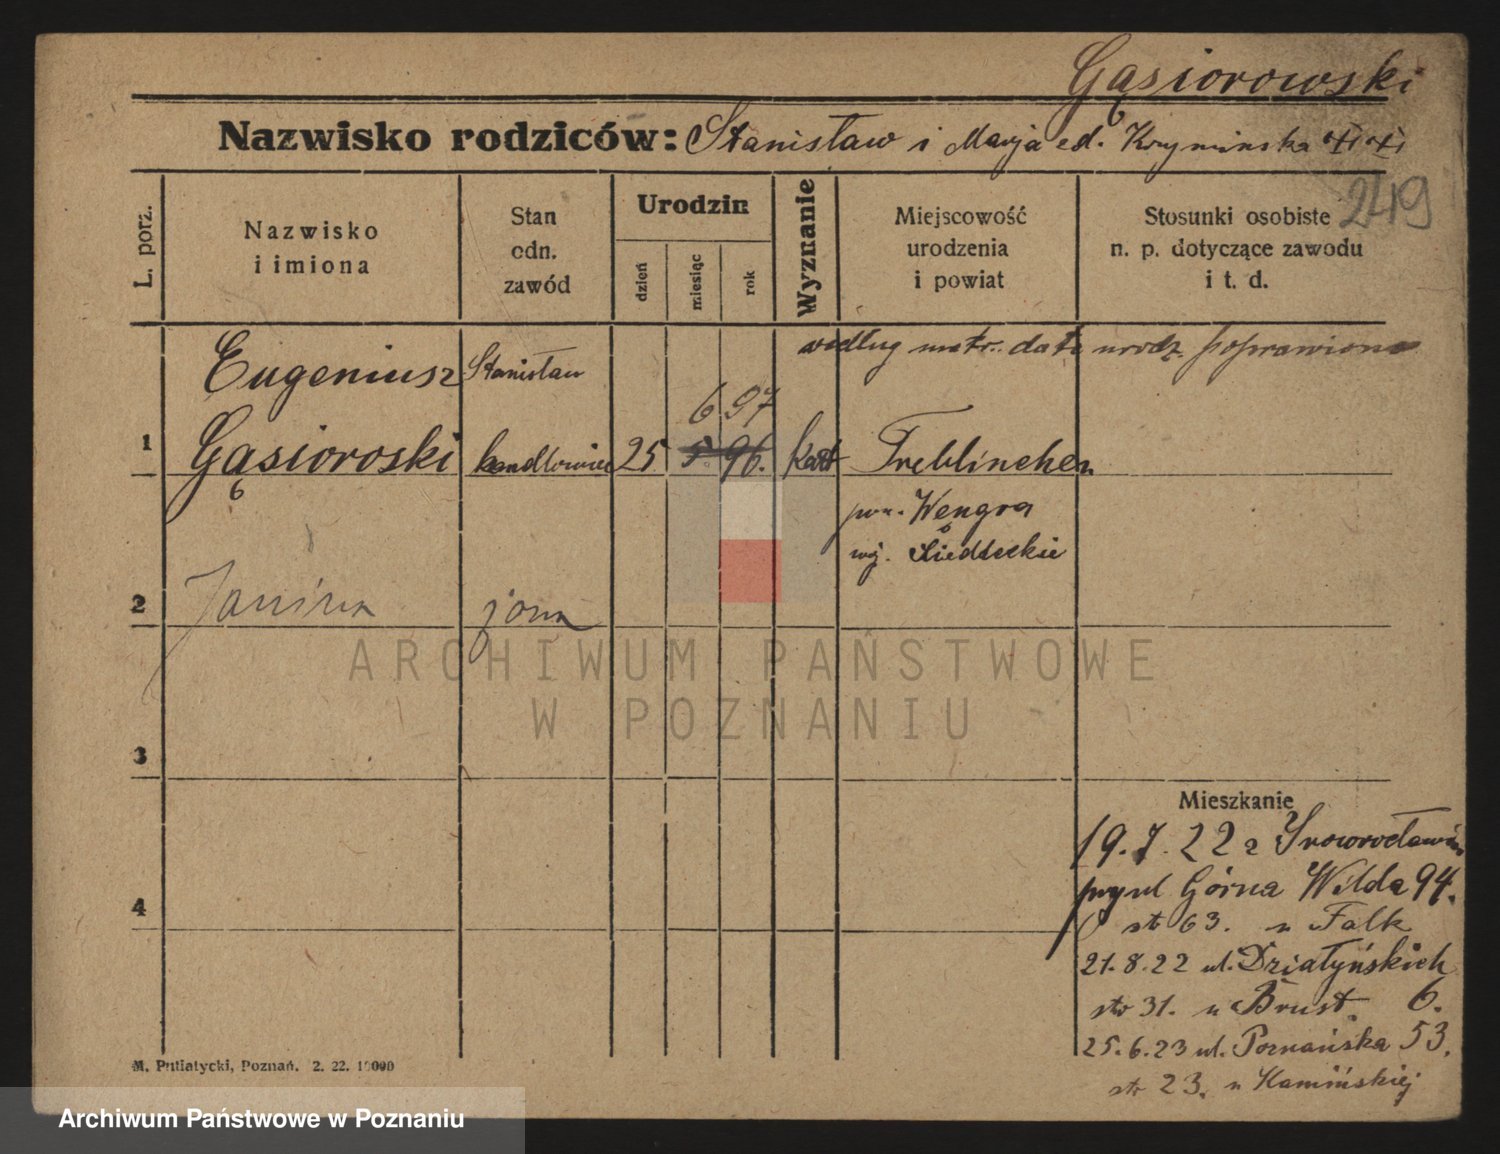 Gąsiorowski
Nazwisko rodziców: Stanisław i Marja ed. Krymińska
2419
L. porz.
Nazwisko
i imiona
Stan
odn.
zawód
Urodzin
dzień
miesiąc
rok
Wyznanie
Miejscowość
urodzenia
i powiat
Stosunki osobiste
n. p. dotyczące zawodu
i t. d.
według metr. data urodz. poprawiona
Eugeniusz Stanisław
6 97
1 Gąsioroski handlowiec 25 5. 96. kat Treblinchen
pow. Węngra
woj. Siedleckie
2 Janina żona
ARCHIWUM PAŃSTWOWE
W POZNANIU
3
Mieszkanie
19.7.22 z Inowrocławia
przy ul Górna Wilda 94.
4
str 63. u Falk
21.8.22 ul. Działyńskich
str 31. u Brust. 6.
25.6.23 ul. Poznańska 53.
str 23. u Kamińskiej
M. Putiatycki, Poznań. 2. 22. 10000
Archiwum Państwowe w Poznaniu